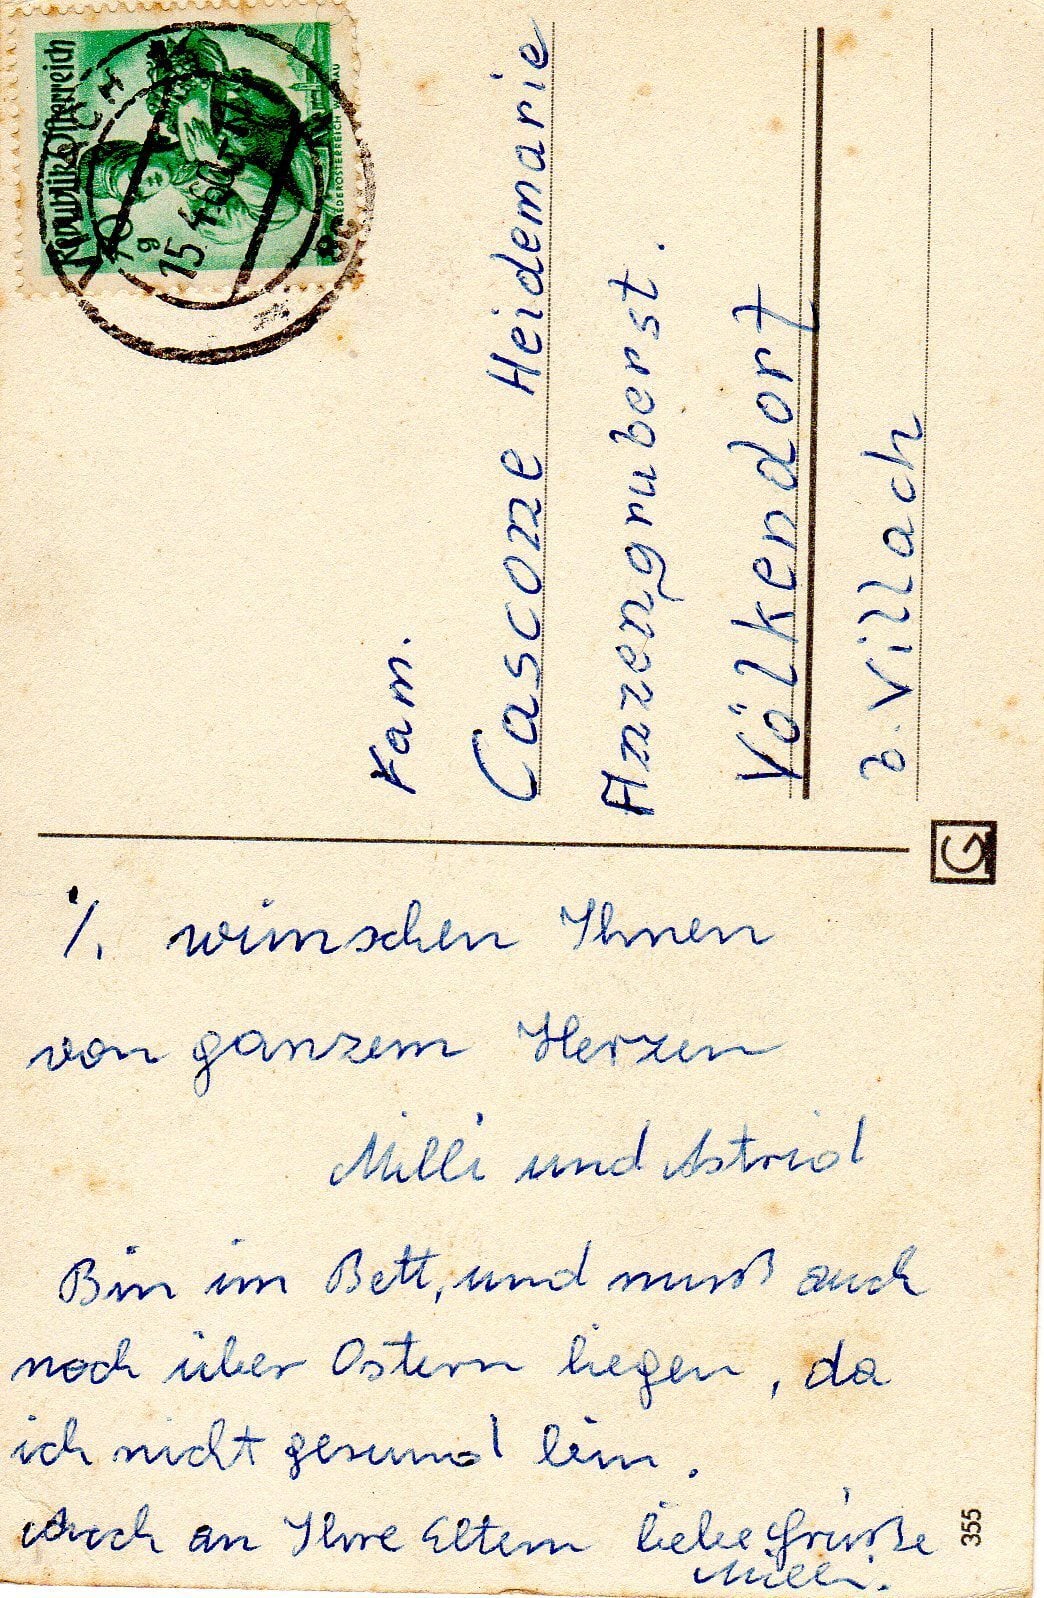 Republik Österreich
NIEDERÖSTERREICH
15.4.60
Fam.
Cascone Heidemarie
Anzengruberst.
Völkendorf
b. Villach
G
./. wünschen Ihnen
von ganzem Herzen
Milli und Astrid
Bin im Bett, und muß auch
noch über Ostern liegen, da
ich nicht gesund bin.
Auch an Ihre Eltern liebe Grüße
Milli.
355